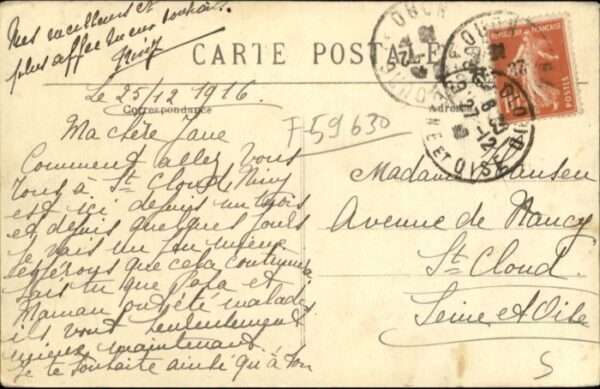 Mes meilleurs et
plus affectueux souhaits.
CARTE POSTALE
Le 25/12 1916.
Correspondance
Adresse
F59630
Ma chère Jane
Comment allez vous
tous à St Cloud,
est ici depuis un mois
et depuis quelques jours
je vais un peu mieux
espérons que cela continuera
Sais tu que Papa et
Maman ont été malades
ils vont seulement
mieux maintenant
Je te souhaite ainsi qu'à ton
Madame Hansen
Avenue de Nancy
St Cloud
Seine et Oise
SEINE ET OISE
POSTES
5